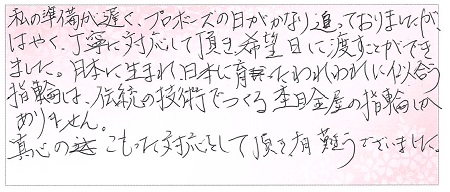 私の準備が遅く、プロポーズの日がかなり迫っておりましたが、
はやく、丁寧に対応して頂き、希望日に渡すことができ
ました。日本に生まれ、日本に育ったわれわれに似合う
指輪は、伝統の技術でつくる杢目金屋の指輪しか
ありません。
真心のこもった対応をして頂き有難うございました。